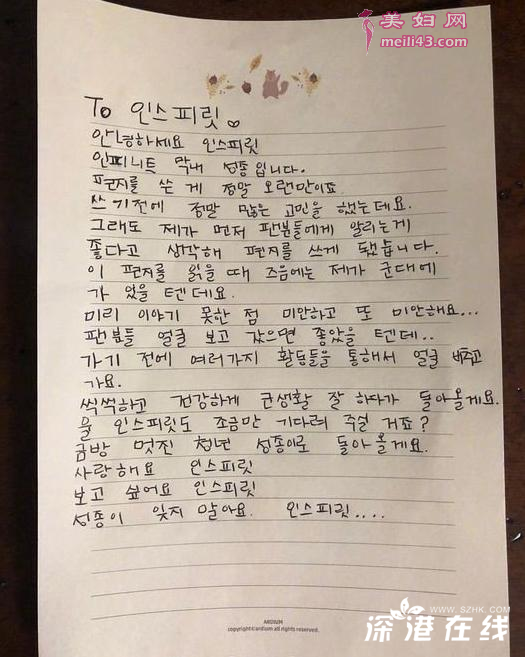 美妇网
meili43.com
To 인스피릿
안녕하세요 인스피릿
인피니트 막내 성종입니다.
편지를 쓴 게 정말 오랜만이죠
쓰기전에 정말 많은 고민을 했는데요.
그래도 제가 먼저 팬분들에게 알리는게
좋다고 생각해 편지를 쓰게 됐습니다.
이 편지를 읽을 때 즈음에는 제가 군대에
가 있을 텐데요.
미리 이야기 못한 점 미안하고 또 미안해요...
팬분들 얼굴 보고 갔으면 좋았을 텐데..
가기 전에 여러가지 활동들을 통해서 얼굴 비추고
가요.
씩씩하고 건강하게 군생활 잘 하다가 돌아올게요.
울 인스피릿도 조금만 기다려 주실 거죠?
금방 멋진 청년 성종이로 돌아올게요.
사랑해요 인스피릿
보고 싶어요 인스피릿
성종이 잊지 말아요. 인스피릿....
ARDIUM
copyright©ardium all rights reserved.
WWW.SZHK.COM
深港在线